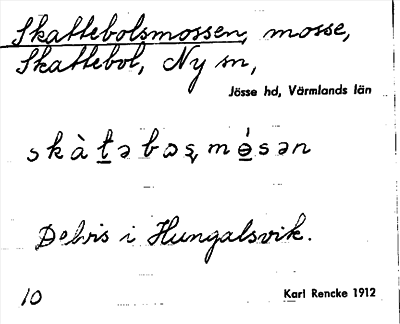 Skattebolsmossen, mosse,
Skattebol, Ny sn,
Jösse hd, Värmlands län
Delvis i Hungalsvik.
10
Karl Rencke 1912